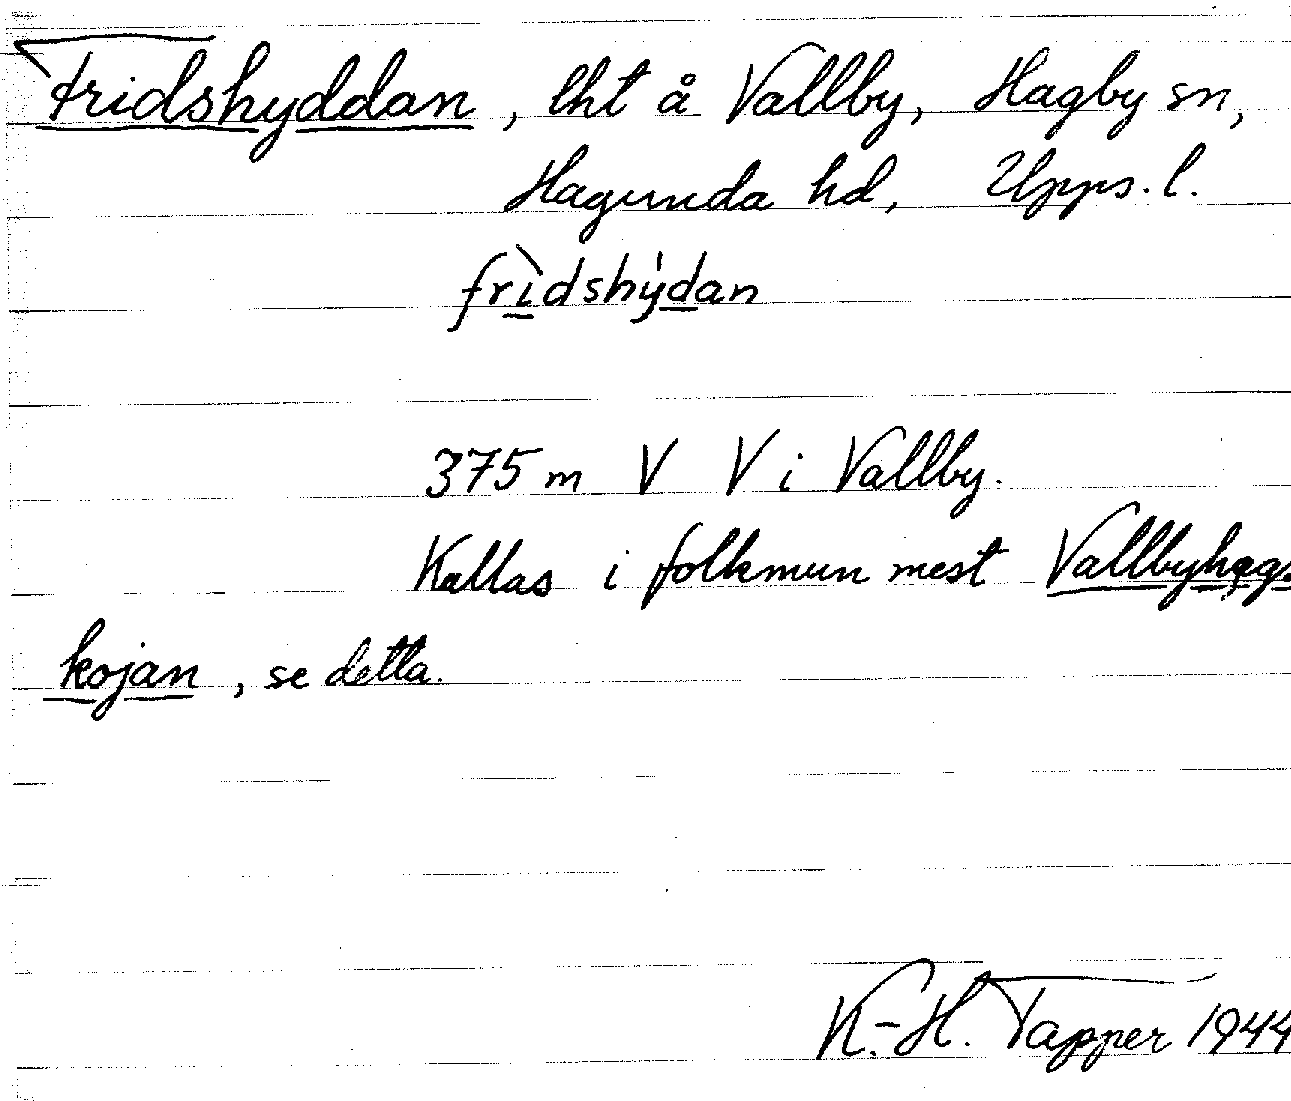 Fridshyddan, lht å Vallby, Hagby sn,
Hagunda hd, Upps. l.
frìdshýdan
375 m V V i Vallby.
Kallas i folkmun mest Vallbyhags-
kojan, se detta.
K.-H. Tapper 1944